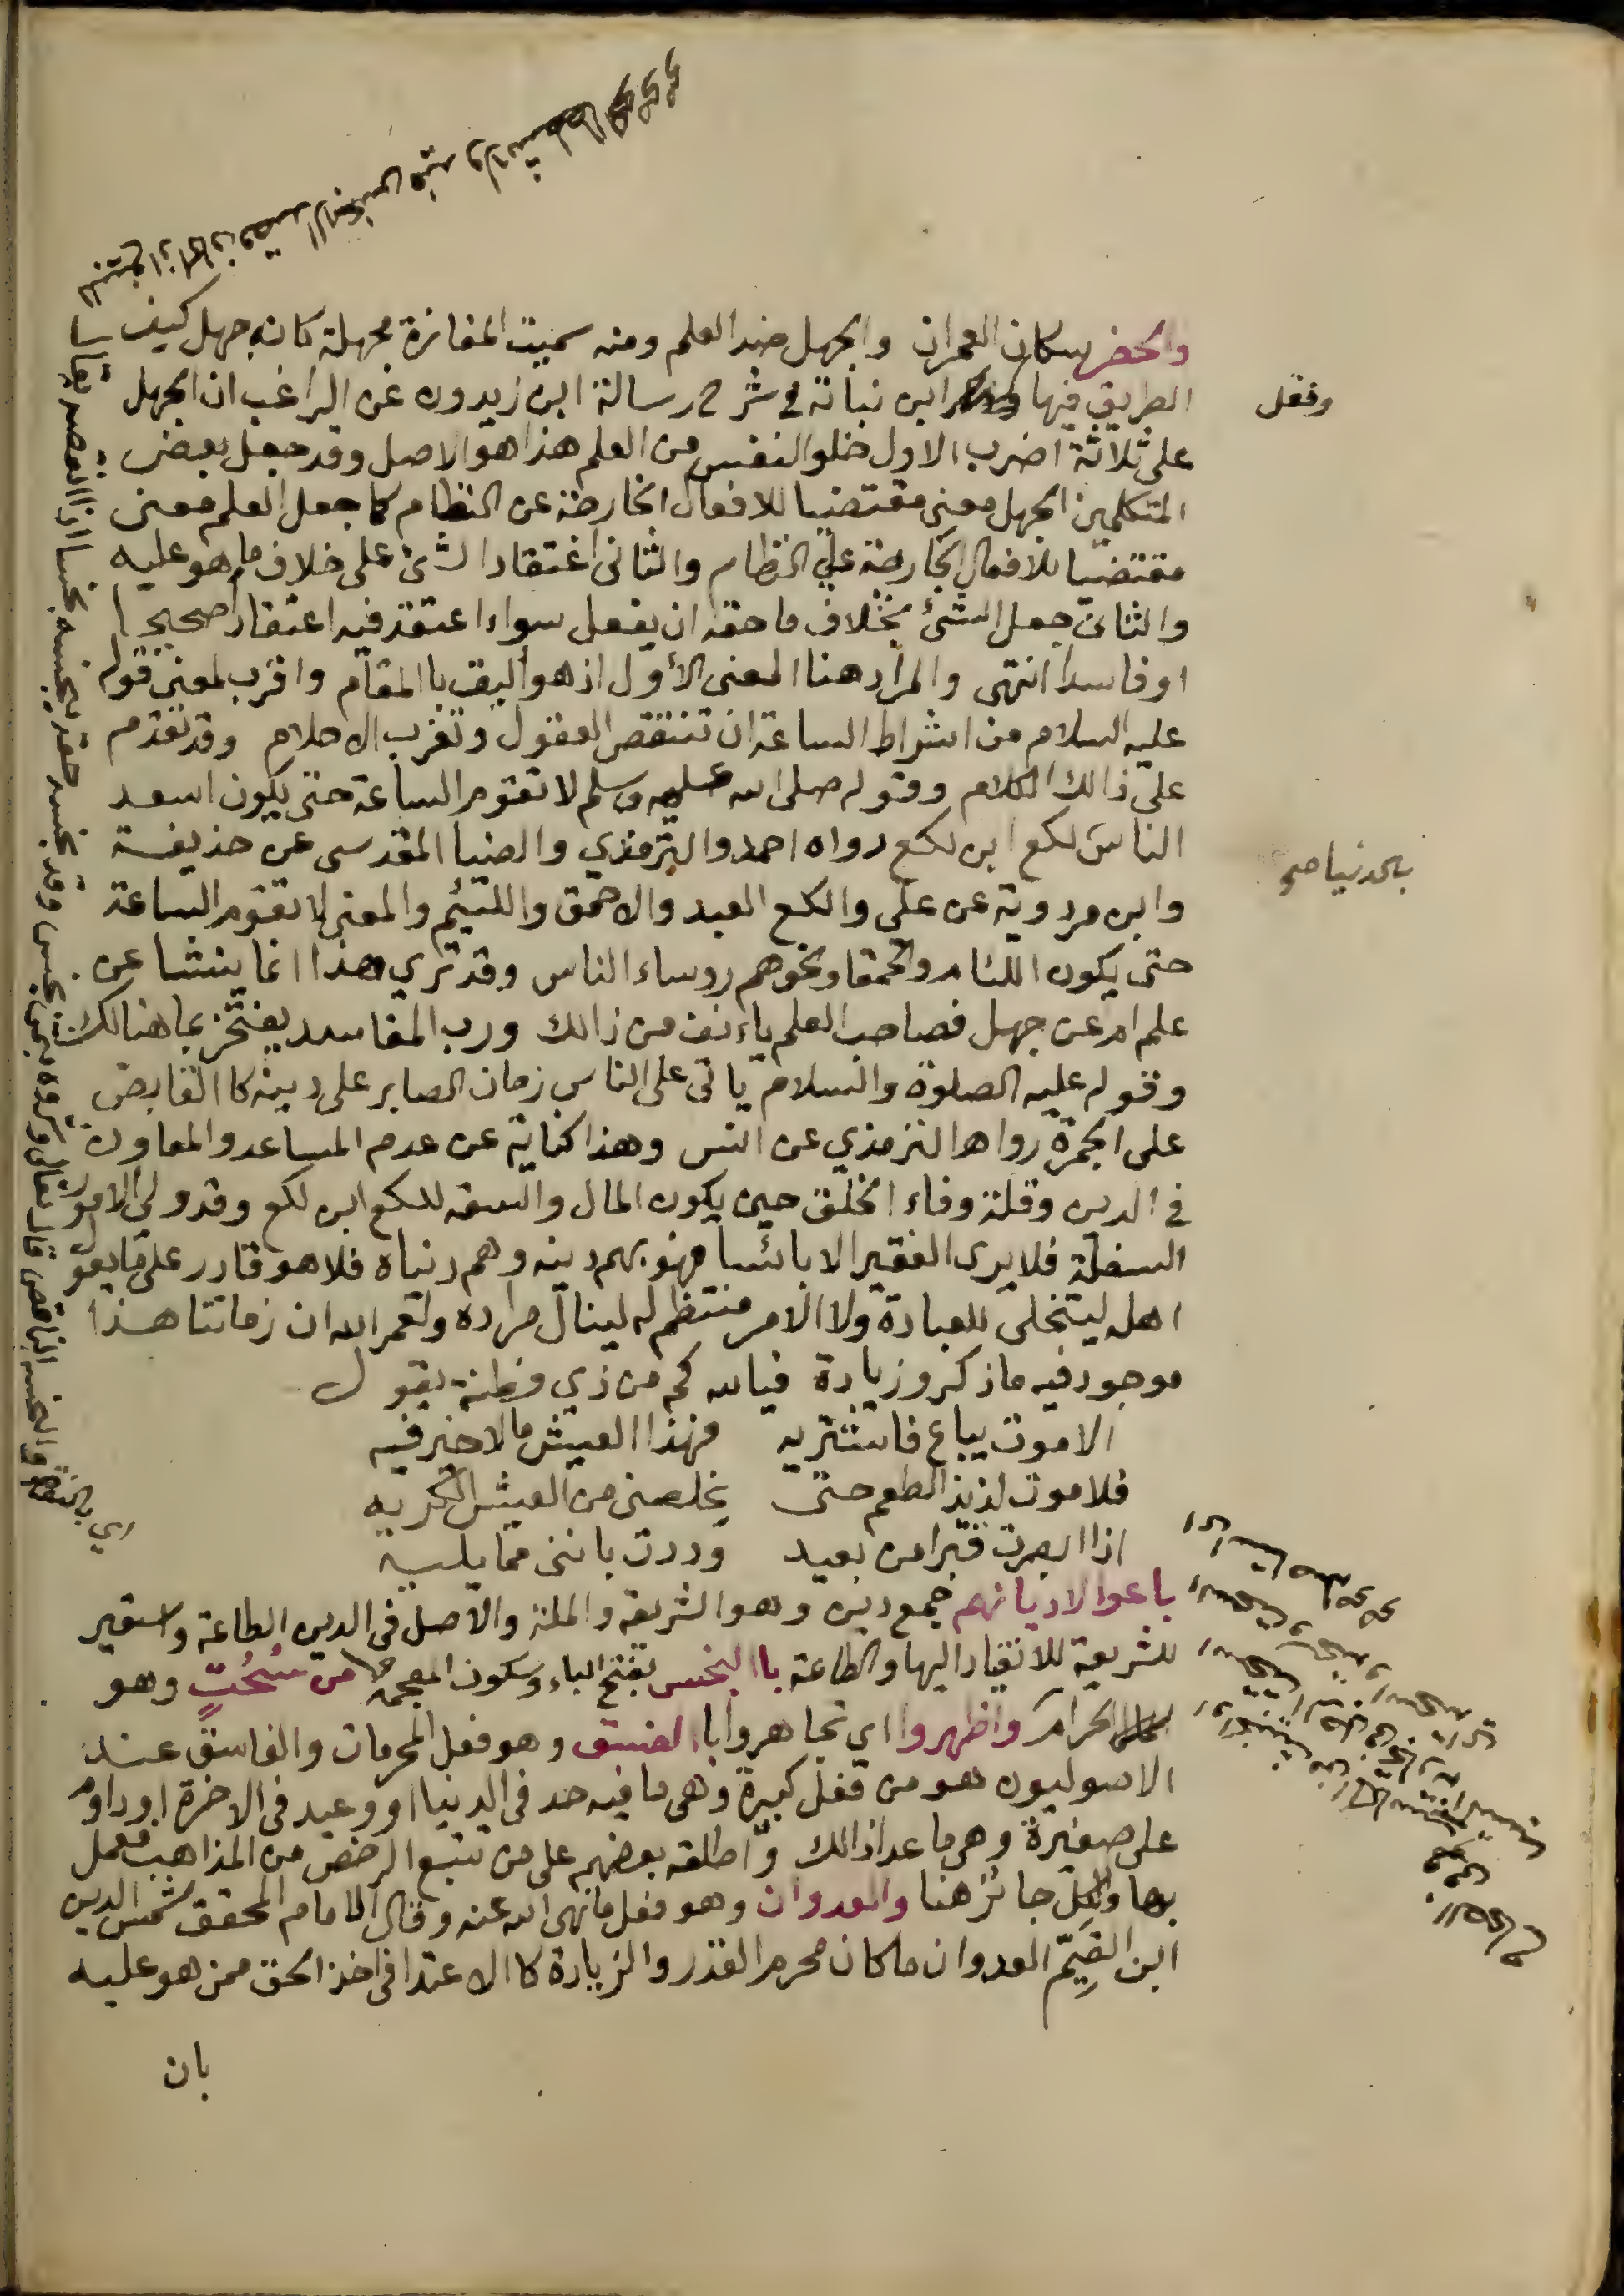 والحضر سكان العمران والجهل ضد العلم ومنه سميت المفازة مجهلة كانه جهل كيف
الطريق فيها ابن نباتة في شرح رسالة ابن زيدون عن الراغب ان الجهل
ونقل
على ثلاثة اضرب الاول خلو النفس من العلم هذا هو الاصل وقد جعل بعض
المتكلمين الجهل معنى مقتضيا للافعال الخارجة عن النظام كما جعل العلم معنى
مقتضيا للافعال الجارية على النظام والثاني اعتقاد الشئ على خلاف ما هو عليه
والثالث جعل الشئ بخلاف ما حقه ان يفعل سواء اعتقد فيه اعتقادا صحيحا
او فاسدا انتهى والمراد هنا المعنى الأول اذ هو أليق با المقام واقرب لمعنى قوله
عليه السلام من اشراط الساعة ان تنتقص العقول وتغرب الاحلام وقد تقدم
على ذالك الكلام وقوله صلى الله عليه وسلم لا تقوم الساعة حتى يكون اسعد
الناس لكع ابن لكع رواه احمد والترمذي والضيا المقدسى عن حذيفة
بالدنيا صح
وابن مردوية عن على والكع العبد والاحمق واللئيم والمعنى لا تقوم الساعة
حتى يكون اللئام والحمقا ونحوهم روساء الناس وقد تري هذا انما ينشا عن
علم ام عن جهل فصاحب العلم يأنف من ذالك ورب المفاسد يفتخر بما هنالك
وقوله عليه الصلوة والسلام ياتى على الناس زمان الصابر على دينه كا القابض
على الجمرة رواها الترمذي عن انس وهذا كناية عن عدم المساعد والمعاون
في الدين وقلة وفاء الخلق حين يكون المال والسعة للكع ابن لكع وقد ولى الامور
السفلة فلا يرى الفقير الا بائسا فهو بهم دينه وهم دنياه فلا هو قادر على ما يقول
اهله ليتخلى للعبادة ولا الامر منتظم له لينال مراده ولعمر الله ان زماننا هذا
موجود فيه ما ذكر وزيادة فيالله كم من ذي فطنة يقول
الا موت يباع فاشتريه فهذا العيش ما لا خير فيه
فلا موت لذيذ الطعم حتى يخلصنى من العيش الكريه
اذا ابصرت قبرا من بعيد وددت بانني مما يليه
باعوا الاديانهم جمع دين وهو الشريعة والملة والاصل في الدين الطاعة واستعير
للشريعة للانقياد اليها والطاعة با البخس بفتح الباء وسكون المعجمة من سُحُتٍ وهو
الحرام واظهروا اي تجاهروا با الفسق وهو فعل المحرمات والفاسق عند
الاصوليون هو من فعل كبيرة وهى ما فيه حد في الدنيا او وعيد في الاخرة او داوم
على صغيرة وهي ما عدا ذالك واطلقه بعضهم على من تتبع الرخص من المذاهب فعمل
بها والكل جائز هنا والعدوان وهو فعل ما نهى الله عنه وقال الامام المحقق شمس الدين
ابن القيّم العدوان ما كان محرم القدر والزيادة كا الاعتدا في اخذ الحق ممن هو عليه
بان